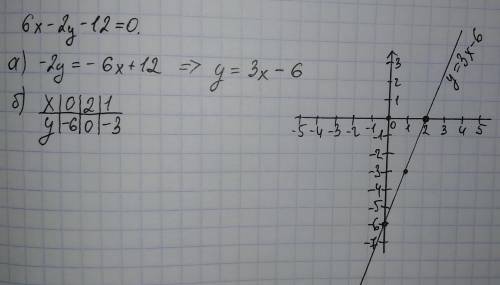 6x-2y-12=0.
а) -2y=-6x+12 => y=3x-6
б) x|0|2|1
y|-6|0|-3
y=3x-6
3
2
1
-5 -4 -3 -2 -1 0 1 2 3 4 5
-1
-2
-3
-4
-5
-6
-7